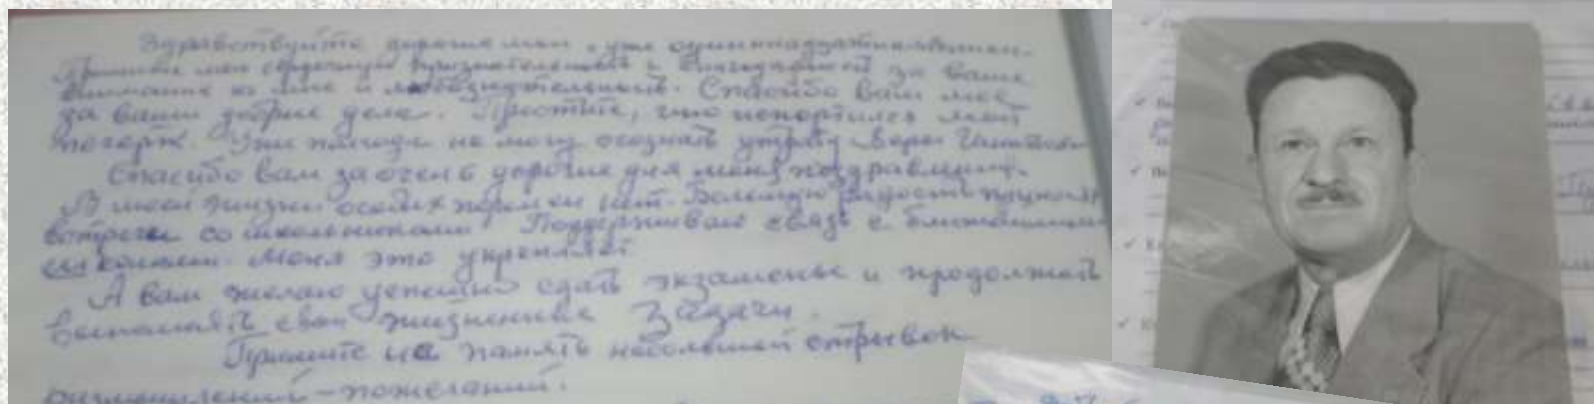 Здравствуйте дорогие мои, уже одиннадцатиклассники.
Примите мою сердечную признательность и за ваше
внимание ко мне и любознательность. Спасибо вам мое
за ваши добрые дела. Простите, что испортился мой
почерк. Уже полгода не могу осознать утрату Веры
Спасибо вам за очень дорогие для меня поздравления.
В моей жизни особых перемен нет. Большую радость приносят
встречи со школьниками. Поддерживаю связь с ближайшими
школами. Меня это укрепляет.
А вам желаю успешно сдать экзамены и продолжать
выполнять свои жизненные задачи.
Примите на память небольшой отрывок
размышлений-пожеланий.